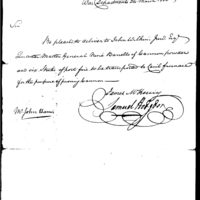 War Department
Sir
Be pleased to deliver to John Wilkins Junr. Esq.
Quarter Master General Nine Barrells of Cannon powder
and six sticks of port fire to be transported to Cecil furnace
for the purpose of proving Cannon.
James McHenry
Samuel Hodgdon
Mr John